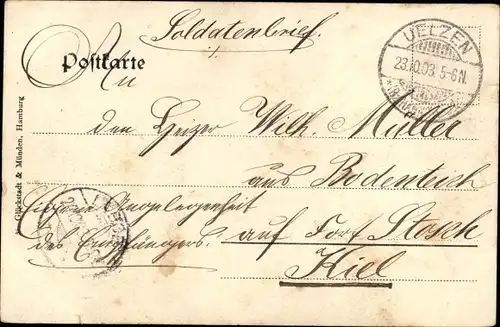 Soldatenbrief.
Postkarte
An
den Heizer Wilh. Müller
aus Bodenteich
Eigene Angelegenheit
des Empfängers.
auf Fort Stosch
Kiel
UELZEN
23.10.03.5-6N.
Glückstadt & Münden, Hamburg